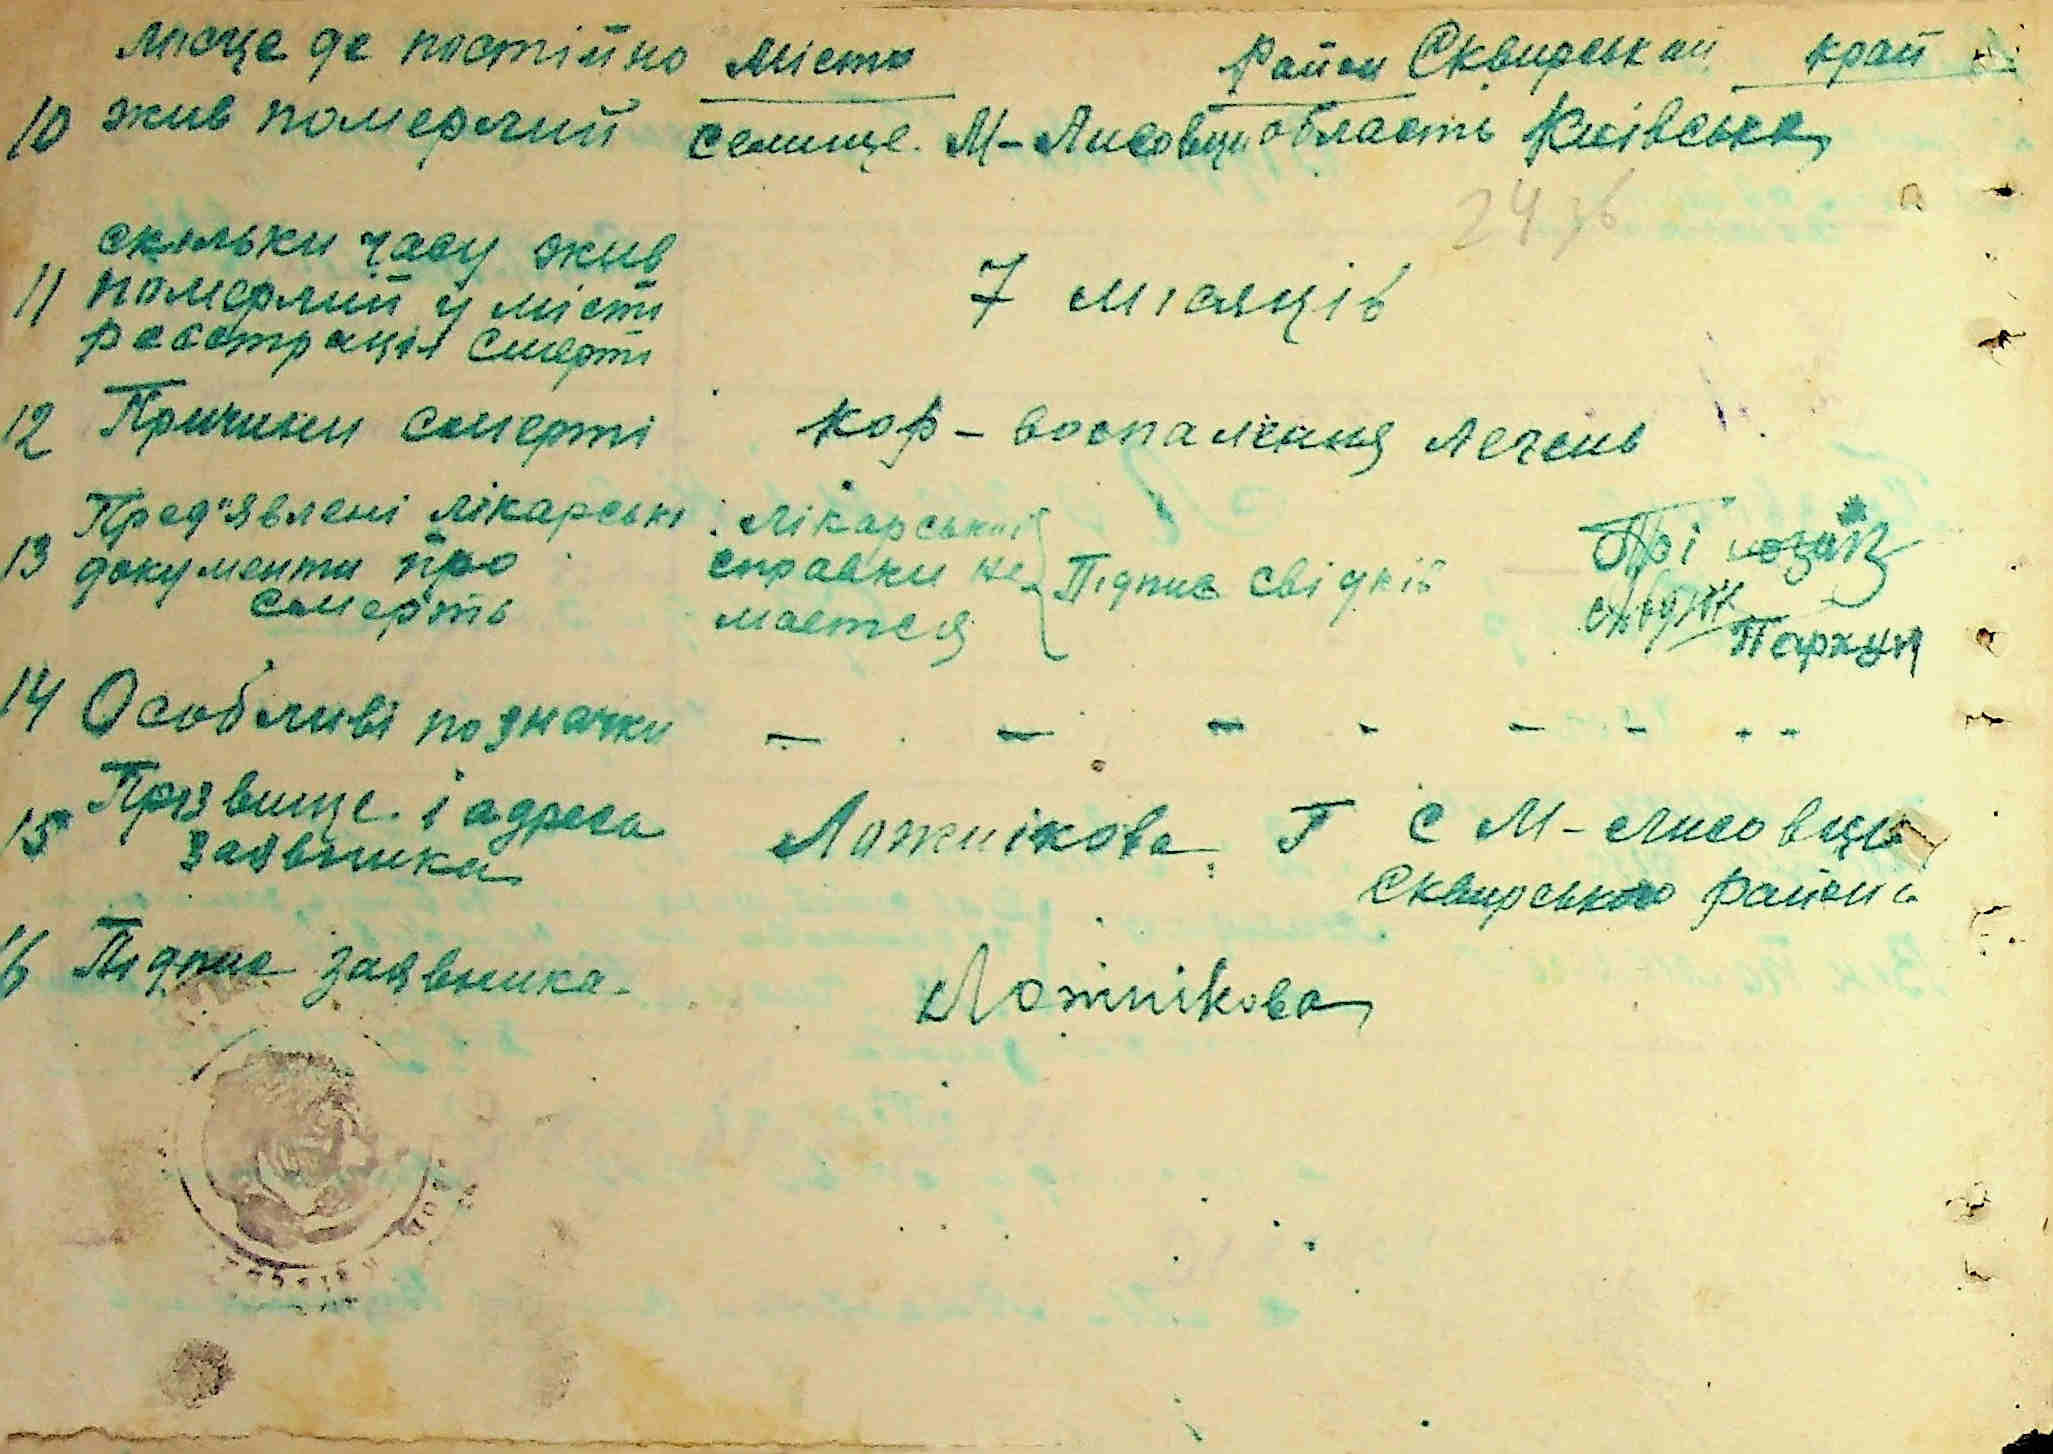 місце де постійно місто район Сквирський край
10 жив померлий селище М-Лисовци область Київська
24
скільки часу жив
11 померлий у місті 7 місяців
реєстрація смерті
12 Причини смерті кор - воспалення лечень
Пред'явлені лікарські лікарської
13 документи про справки не Підпис свідків Прі
смерть мается Пархун
14 Особливі позначки - - - - - - - -
Прізвище і адреса
15 заявника Ложнікова Г С М-лисовци
Сквирського района
16 Підпис заявника Ложнікова